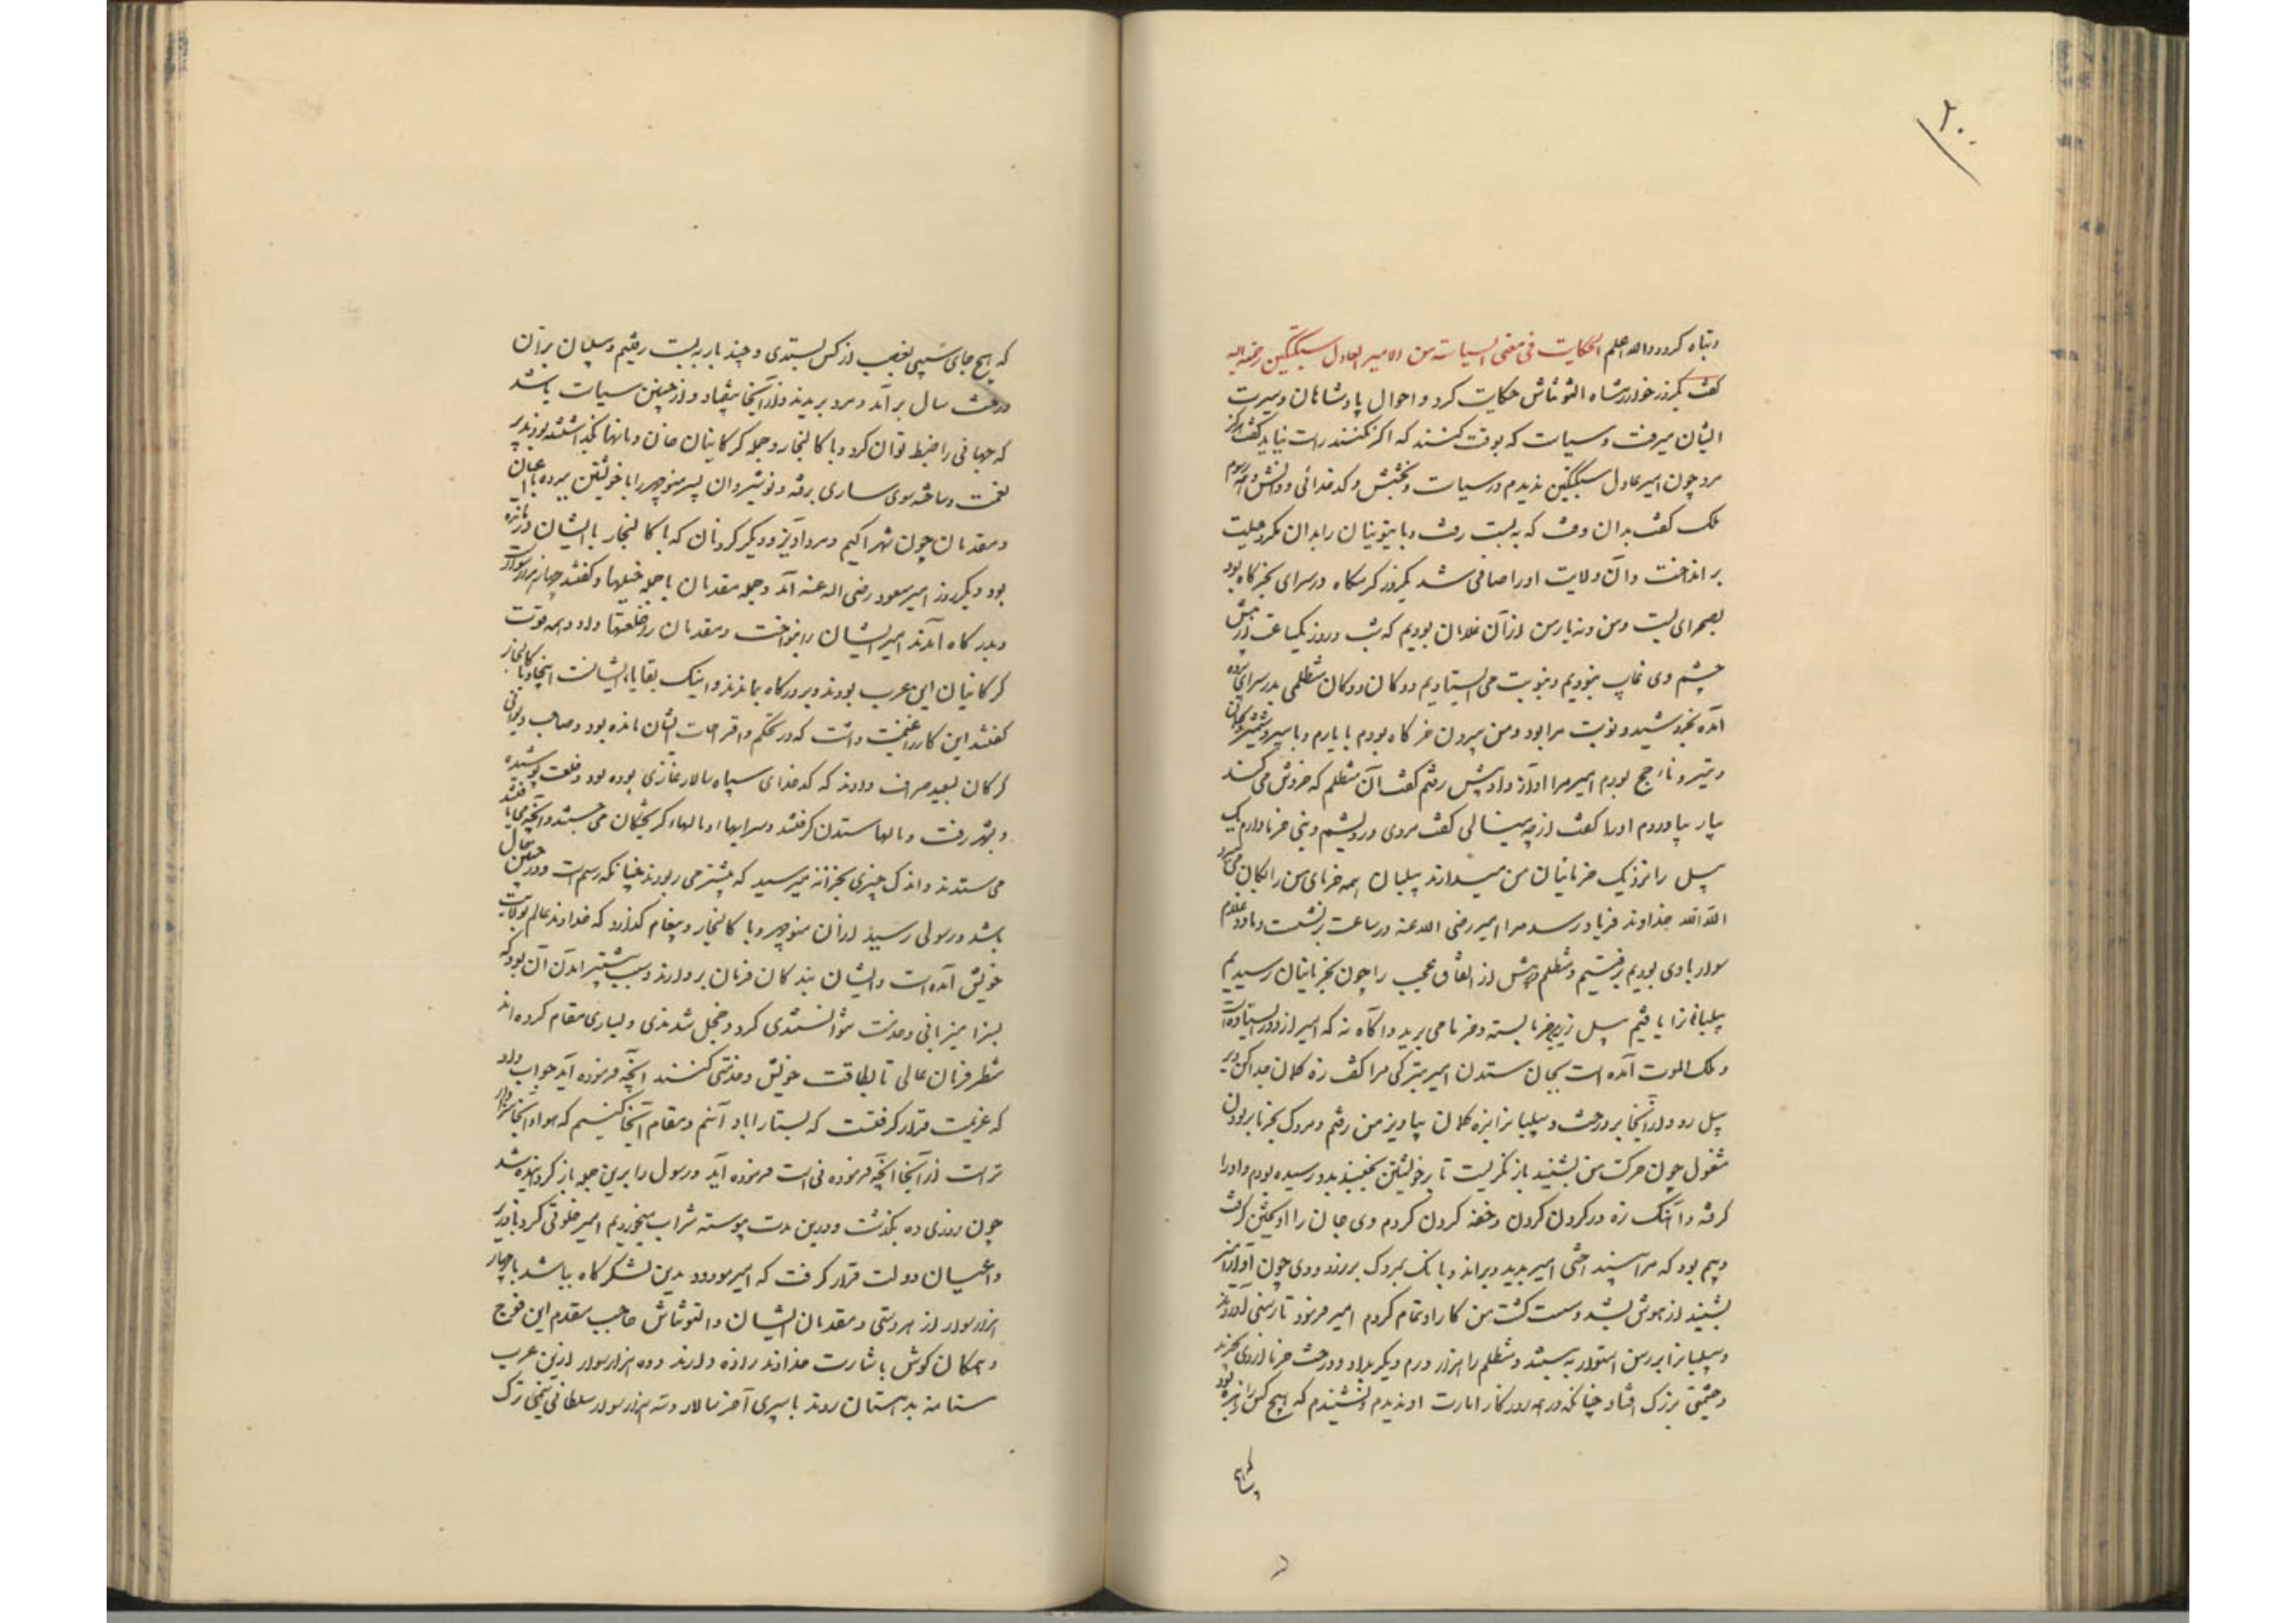 ۲۰۰
و تباه کردد والله اعلم الحکایت فی معنی السیاسة من الامیر العادل سبکتکین رحمة الله
گفت یکروز خوارزمشاه التونتاش حکایت کرد و احوال پادشاهان و سیرت
ایشان میرفت و سیاست که بوقت کنند که اگر نکنند راست نیاید گفت هرگز
مرد چون امیر عادل سبکتکین ندیدم در سیاست و بخشش و کدخدائی و دانش و همه رسوم
ملک گفت بدان وقت که به بست رفت و بایتوزیان را بدان مکر و حیلت
بر انداخت و آن ولایت او را صافی شد یکروز کرمگاه در سرای بخرگاه بود
بصحرای بست و من و نه یار من از آن غلامان بودیم که شب و روز یکساعت از پیش
چشم وی غایب نبودیم و بنوبت می ایستادیم دوکان دوکان متظلمی بدر سرای پرده
آمد بخروشید و نوبت مرا بود و من بیرون خرگاه بودم با یارم و با سپر و شمشیر و کمان
و تیر و ناجخ بودم امیر مرا آواز داد پیش رفتم گفت آن متظلم که خروش می کند
بیار بیاوردم او را گفت از چه مینالی گفت مردی درویشم و بنی خرما دارم یک
پیل را نزدیک خرمابنان من میدارند پیلبان همه خرمای من رایگان می برد
الله الله خداوند فریاد رسد مرا امیر رضی الله عنه در ساعت برنشست و ما دو غلام
سوار با وی بودیم برفتیم و متظلم در پیش از اتفاق عجب را چون بخرمابنان رسیدیم
پیلبانرا یافتیم پیل زیر خرما بسته و خرما می برید و آگاه نه که امیر از دور ایستاده است
و ملک الموت آمده است بجان ستدن امیر بترکی مرا گفت زه کمان جدا کن و بر
پیل رو و از آنجا بر درخت و پیلبانرا بزه کمان بیاویز من رفتم و مردک بخرما بریدن
مشغول چون حرکت من بشنید باز نگریست تا بر خویشتن بجنبید بدو رسیده بودم و او را
گرفته و آهنگ زه در گردن کردن و خفه کردن کردم وی جان را آویختن گرفت
و بیم بود که مرا بیندا ختی امیر بدید و براند و بانگ بمردک برزد و وی چون آواز امیر
بشنید از هوش بشد و سست گشت من کار او تمام کردم امیر فرمود تا رسنی آوردند
و پیلبانرا بر رسن استوار به بستند و متظلم را هزار درم دیگر بداد و درخت خرما از وی بخرید
و حشمتی بزرگ افتاد چنانکه در همه روزکار امارت او ندیدم و نشنیدم که هیچ کس را زهره بود
که هیچ جای سیبی بغصب از کس بستدی و چند بار به بست رفتیم و پیلبان بر آن
درخت سال بر آمد و مرد بریدند و از آنجا بیفتاد و از چنین سیاست باشد
که جهانی را ضبط توان کرد و با کالنجار و جمله گرگانیان خان و مانها بگذاشتند بودند پر
نعمت و ساخته سوی ساری برفته و نوشیروان پسر منوچهر را با خویشتن ببرده با اعیان
و مقدمان چون شهر اکیم و مرد آویز و دیگر گردنان که با کالنجار با ایشان درمانده
بود و دیگر روز امیر مسعود رضی الله عنه آمد و جمله مقدمان با جمله خیلها و گفتند چهار هزار سوار است
و بدرگاه آمدند امیر ایشان را بنواخت و مقدمان را خلعتها داد و همه قوت
گرگانیان این عرب بودند و بر درگاه بماندند و اینک بقایا ایشانست اینجا و با کالنجار
گفتند این کار را غنیمت داشت که در تحکم و اقتراحات ایشان مانده بود و صاحب دیوانی
گرگان بسعید صراف دادند که کدخدای سپاه سالار غازی بوده بود و خلعت پوشیده
و بشهر رفت و مالها ستدن گرفتند و سرایها و مالهاء گریختگان می جستند و آنچه می یافتند
می ستدند و اندک چیزی بخزانه میرسید که بیشتر می ربودند چنانکه رسمست و در چنین حال
باشد و رسولی رسید از آن منوچهر و با کالنجار و پیغام گذارد که خداوند عالم بولایت
خویش آمده است و ایشان بندگان فرمان بردارند و سبب پیشتر آمدن آن بود که
بسزا میزبانی و خدمت نتوانستندی کرد و خجل شدندی و بساری مقام کرده اند
منتظر فرمان عالی تا بطاقت خویش خدمتی کنند آنچه فرموده آید جواب داد
که عزیمت قرار گرفتست که بستارآباد آئیم و مقام آنجا کنیم که هواء آنجا سازگار
تر است از آنجا آنچه فرمودنی است فرموده آید و رسول را برین جمله باز گردانیده شد
چون روزی ده بگذشت و درین مدت پیوسته شراب میخوردیم امیر خلوتی کرد با وزیر
و اعیان دولت قرار گرفت که امیر مودود بدین لشکرگاه بباشد با چهار
هزار سوار از هر دستی و مقدمان ایشان و التونتاش حاجب مقدم این فوج
و همگان گوش باشارت خداوندزاده دارند و ده هزار سوار ازین عرب
ستامنه بدهستان روند با سپری آخر سالار و سه هزار سوار سلطانی نیمی ترک